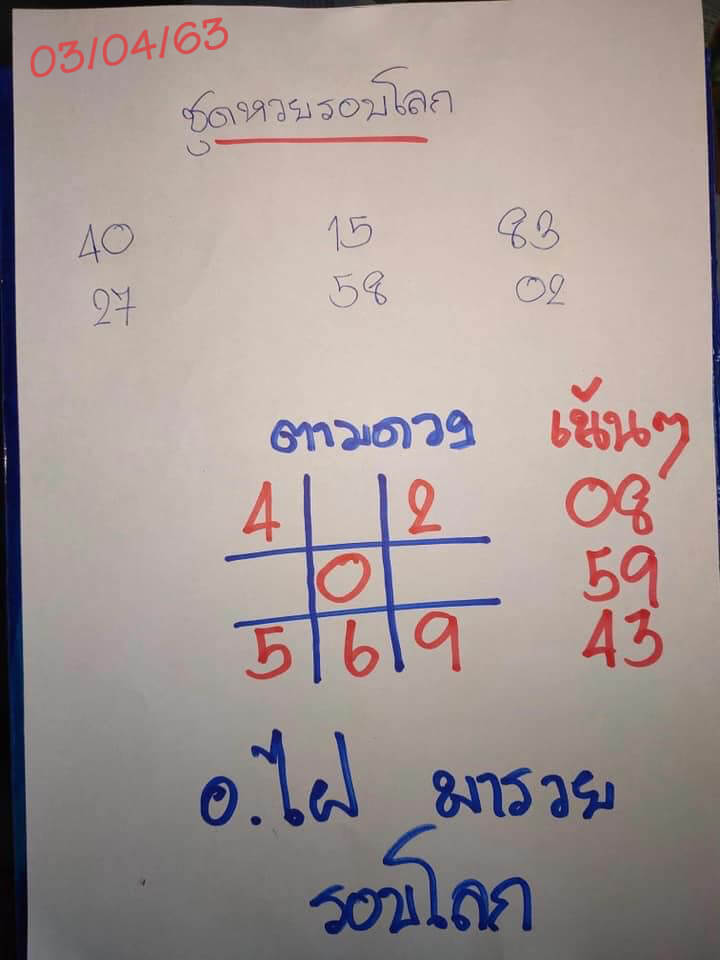 03/04/63
ชุดหวยรอบโลก
40 15 83
27 58 02
ตามดวง เน้นๆ
4 2 08
0 59
5 6 9 43
อ.ไฝ พารวย
รอบโลก